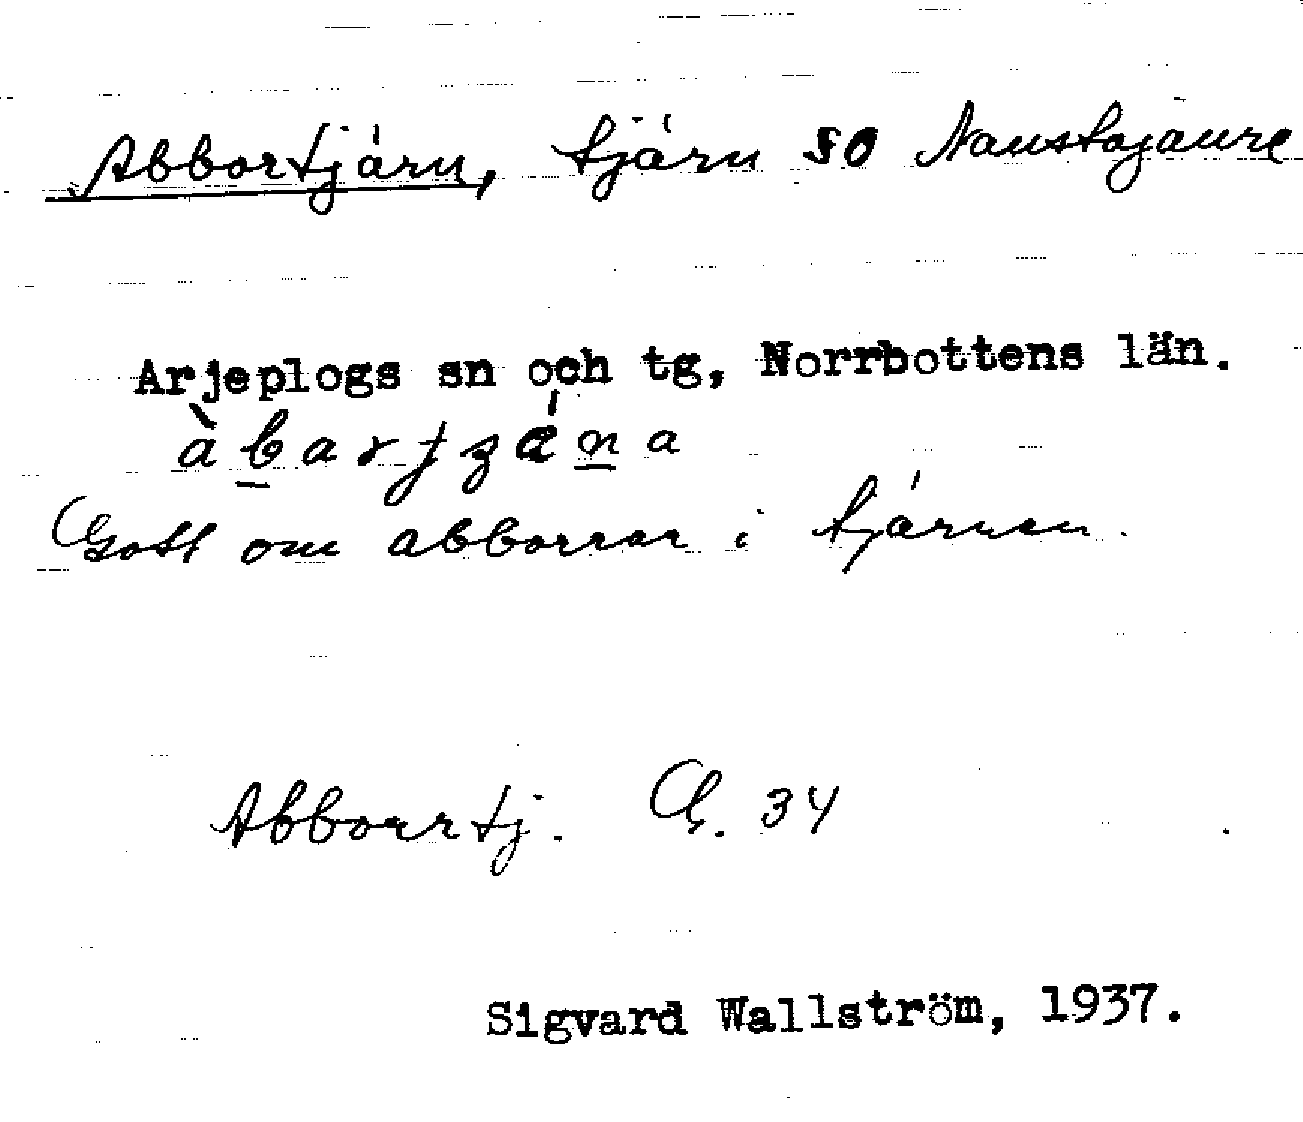 Abbortjärn, tjärn SO Naustajaure
Arjeplogs sn och tg, Norrbottens län.
Gott om abborrar i tjärnen.
Abborrtj. G. 34
Sigvard Wallström, 1937.